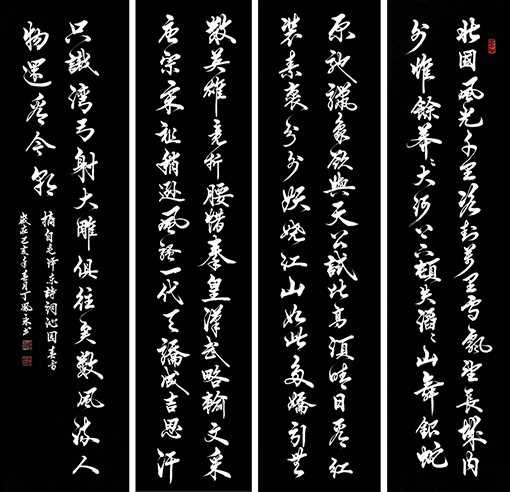 北國風光千里冰封萬里雪飄望長城内
外惟餘莽々大河上下頓失滔々山舞銀蛇
原馳蠟象欲與天公試比高須晴日看紅
裝素裹分外妖嬈江山如此多嬌引無
數英雄競折腰惜秦皇漢武略輸文采
唐宗宋祖稍遜風騷一代天驕成吉思汗
只識彎弓射大雕俱往矣數風流人
物還看今朝
摘自毛泽东詩詞沁园春雪
歲在己亥年春月丁風永书